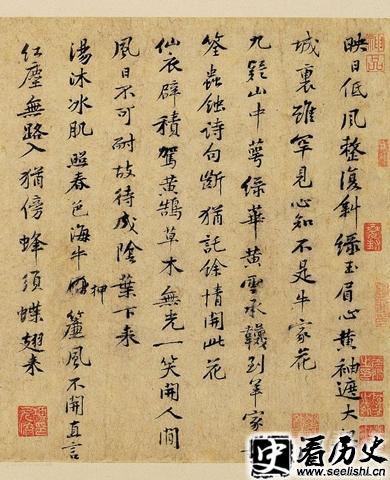 映日低風整復斜綠玉眉心黃袖遮大
城裏雖罕見心知不是牛家花
九疑山中萼綠華黃雲承襪到羊家
筌蟲蝕詩句斷猶託餘情開此花
仙衣襞積駕黃鵠草木無光一笑開人間
風日不可耐故待成陰葉下來
湯沐冰肌照春色海牛押簾風不開直言
紅塵無路入猶傍蜂須蝶翅來
史看历史
www.seelishi.cn